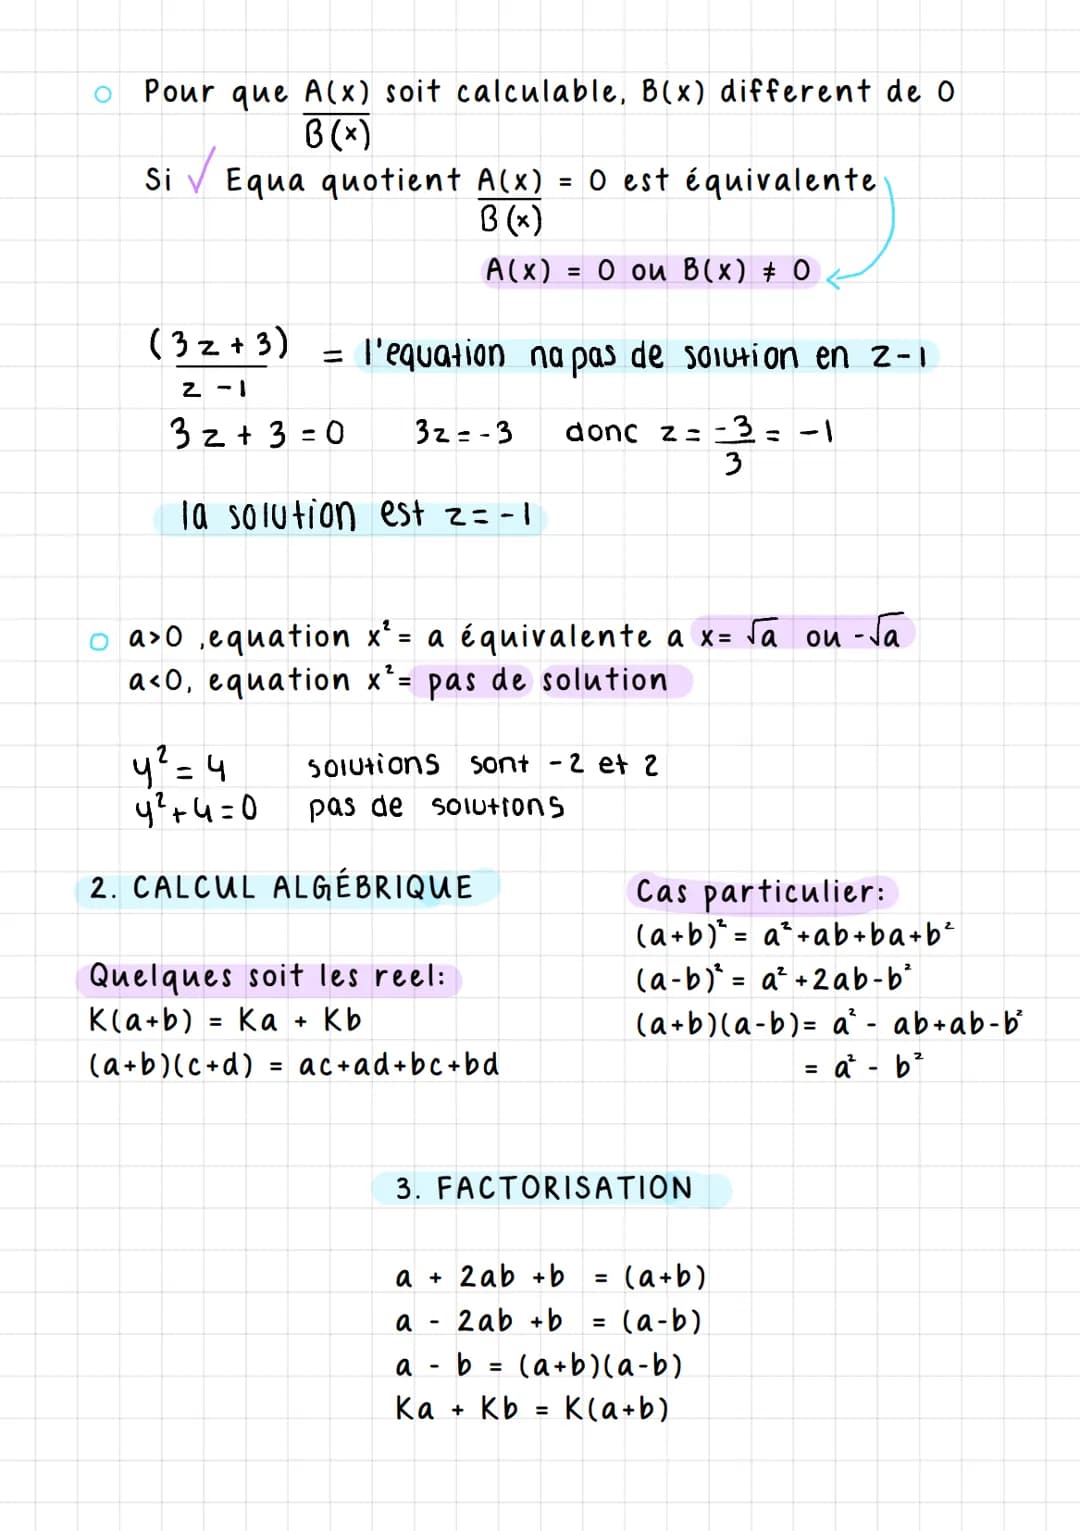 Pour que A(x)/B(x) soit calculable, B(x) different de 0
Si √ Equa quotient A(x)/B(x) = 0 est équivalente
A(x) = 0 ou B(x) ≠ 0
(3z+3)/z-1 = l'equation na pas de solution en z-1
3z+3=0 3z=-3 donc z=-3/3=-1
la solution est z=-1
a>0 ,equation x²= a équivalente a x= √a ou -√a
a<0, equation x²= pas de solution
y²=4 solutions sont -2 et 2
y²+4=0 pas de solutions
2. CALCUL ALGÉBRIQUE
Quelques soit les reel:
K(a+b) = Ka + Kb
(a+b)(c+d) = ac+ad+bc+bd
Cas particulier:
(a+b)²= a²+ab+ba+b²
(a-b)²= a²+2ab-b²
(a+b)(a-b)= a² - ab+ab-b²
= a² - b²
3. FACTORISATION
a + 2ab +b = (a+b)
a - 2ab +b = (a-b)
a - b = (a+b)(a-b)
Ka + Kb = K(a+b)